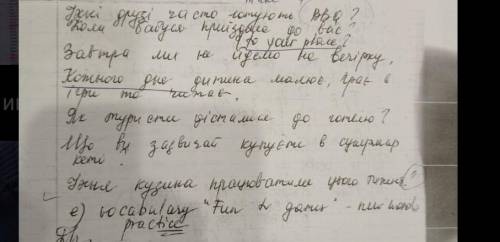 Їхні друзі часто готують BBQ?
Коли бабуся приїздила до вас?
to your place?
Завтра ми не йдемо на вечірку.
Кожного дня дитина малює, грає в
ігри та читає.
Як туристи дісталися до готелю?
Що ви зазвичай купуєте в супермар
кеті?
Їхня кузина працюватиме цього тижня?
e) vocabulary "Fun & games" -
practice